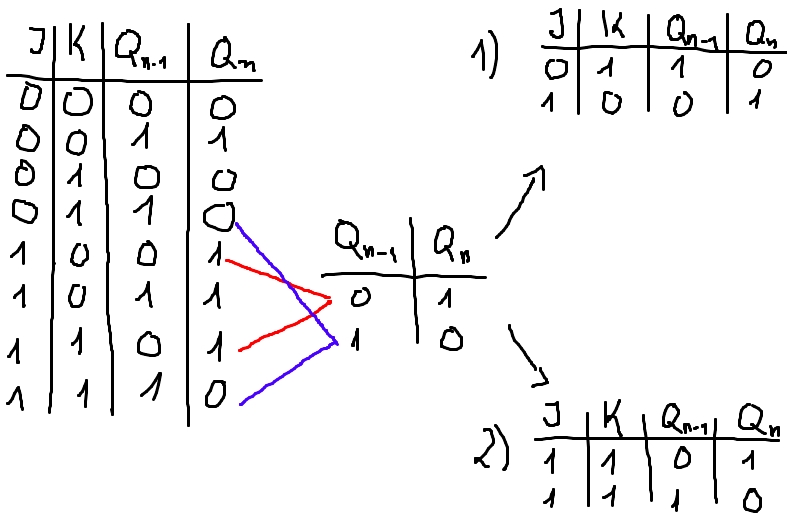 J K Qn-1 Qn
0 0 0 0
0 0 1 1
0 1 0 0
0 1 1 0
1 0 0 1
1 0 1 1
1 1 0 1
1 1 1 0
Qn-1 Qn
0 1
1 0
1) J K Qn-1 Qn
0 1 1 0
1 0 0 1
2) J K Qn-1 Qn
1 1 0 1
1 1 1 0